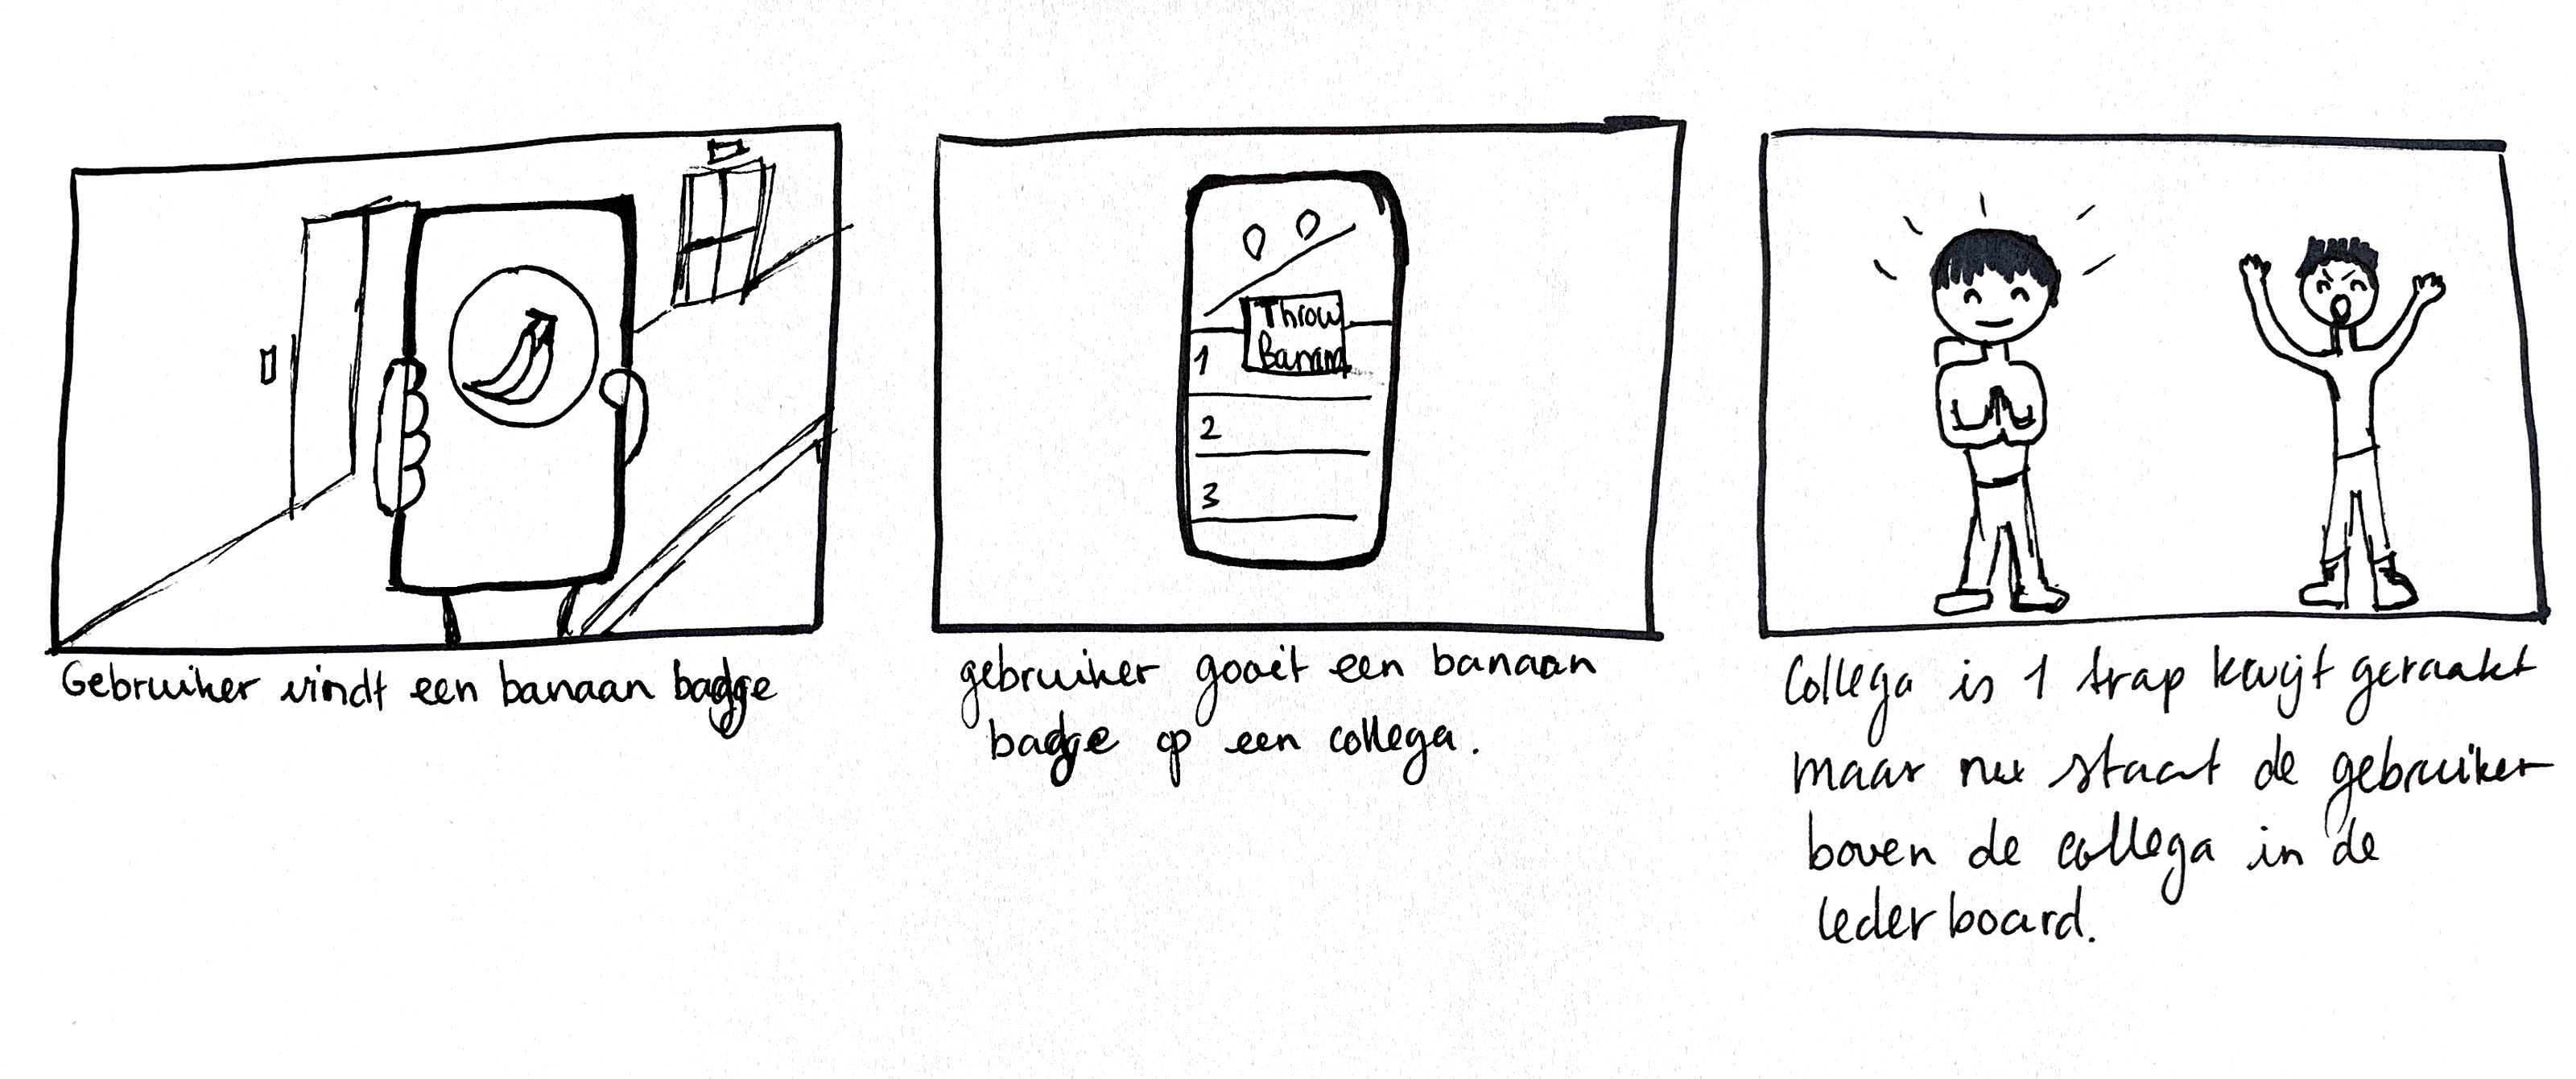 Throw
Banana
1
2
3
Gebruiker vindt een banaan badge
gebruiker gooit een banaan
badge op een collega.
Collega is 1 trap kwijt geraakt
maar nu staat de gebruiker
boven de collega in de
lederboard.